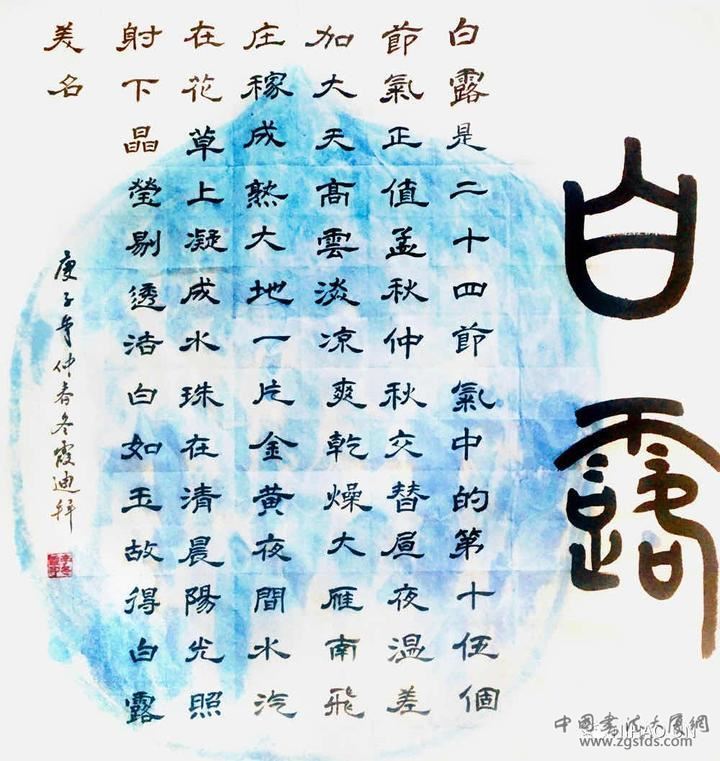 白露
白露是二十四節氣中的第十伍個
節氣正值孟秋仲秋交替昼夜温差
加大天髙雲淡凉爽乾燥大雁南飛
庄稼成熟大地一片金黄夜間水汽
在花草上凝成水珠在清晨陽光照
射下晶瑩剔透洁白如玉故得白露
美名
庚子年仲春冬霞迪
中國書法大厦網
www.zgsfds.com